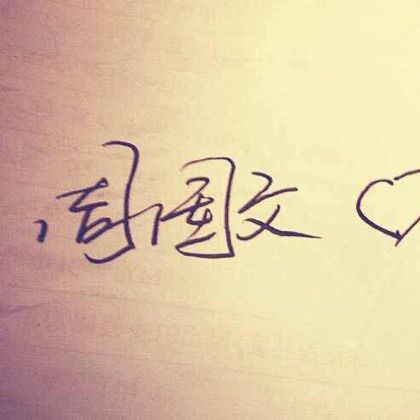 周国文